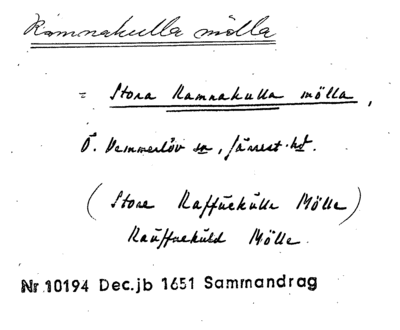 Ramnakulla mölla
= Stora Ramnakulla mölla,
Ö. Vemmerlöv sn, Järrest. hd.
(Store Raffnekulle Mölle)
Rauffnekuld Mölle.
Nr 10194 Dec.jb 1651 Sammandrag